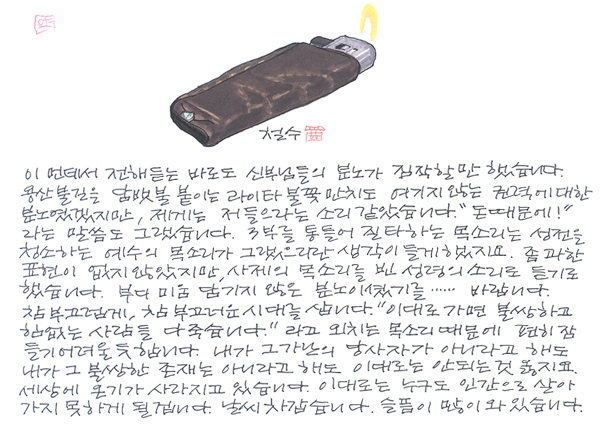 철수
이 먼데서 전해듣는 바로도 신부님들의 분노가 짐작할만 했습니다.
용산불길을 담뱃불 붙이는 라이타 불쯤 만치도 여기지 않는 권력에 대한
분노였겠지만, 제게는 저 들으라는 소리 같았습니다. "돈때문에!"
라는 말씀도 그랬습니다. 3부를 통틀어 질타하는 목소리는 성전을
청소하는 예수의 목소리가 그랬으리란 생각이 들게 했지요. 좀 과한
표현이 없지 않았지만, 사제의 목소리를 빈 성령의 소리로 듣기로
했습니다. 부디 미움 담기지 않은 분노이셨기를...... 바랍니다.
참 부끄럽게, 참 부끄러운 시대를 삽니다. "이대로 가면 불쌍하고
힘없는 사람들 다 죽습니다." 라고 외치는 목소리 때문에 편히 잠
들기 어려울 듯 합니다. 내가 그 가난의 당사자가 아니라고 해도
내가 그 불쌍한 존재는 아니라고 해도 이대로는 안되는 것 옳지요.
세상에 온기가 사라지고 있습니다. 이대로는 누구도 인간으로 살아
가지 못하게 될겝니다. 날씨 차갑습니다. 슬픔이 많이 와 있습니다.